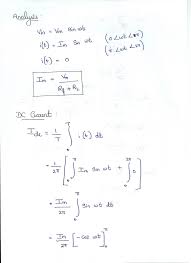 Analysis:
Vin = Vm sin wt
i(t) = Im Sin wt (0 ∠ wt ∠ π)
i(t) = 0 (π ∠ wt ∠ 2π)
Im = Vm / (Rf + RL)
DC Current:
Idc = 1/T ∫ i(t) dt
= 1/2π [ ∫ Im Sin wt + ∫ 0 ]
= Im/2π ∫ Sin wt dt
= Im/2π [ -cos wt ]